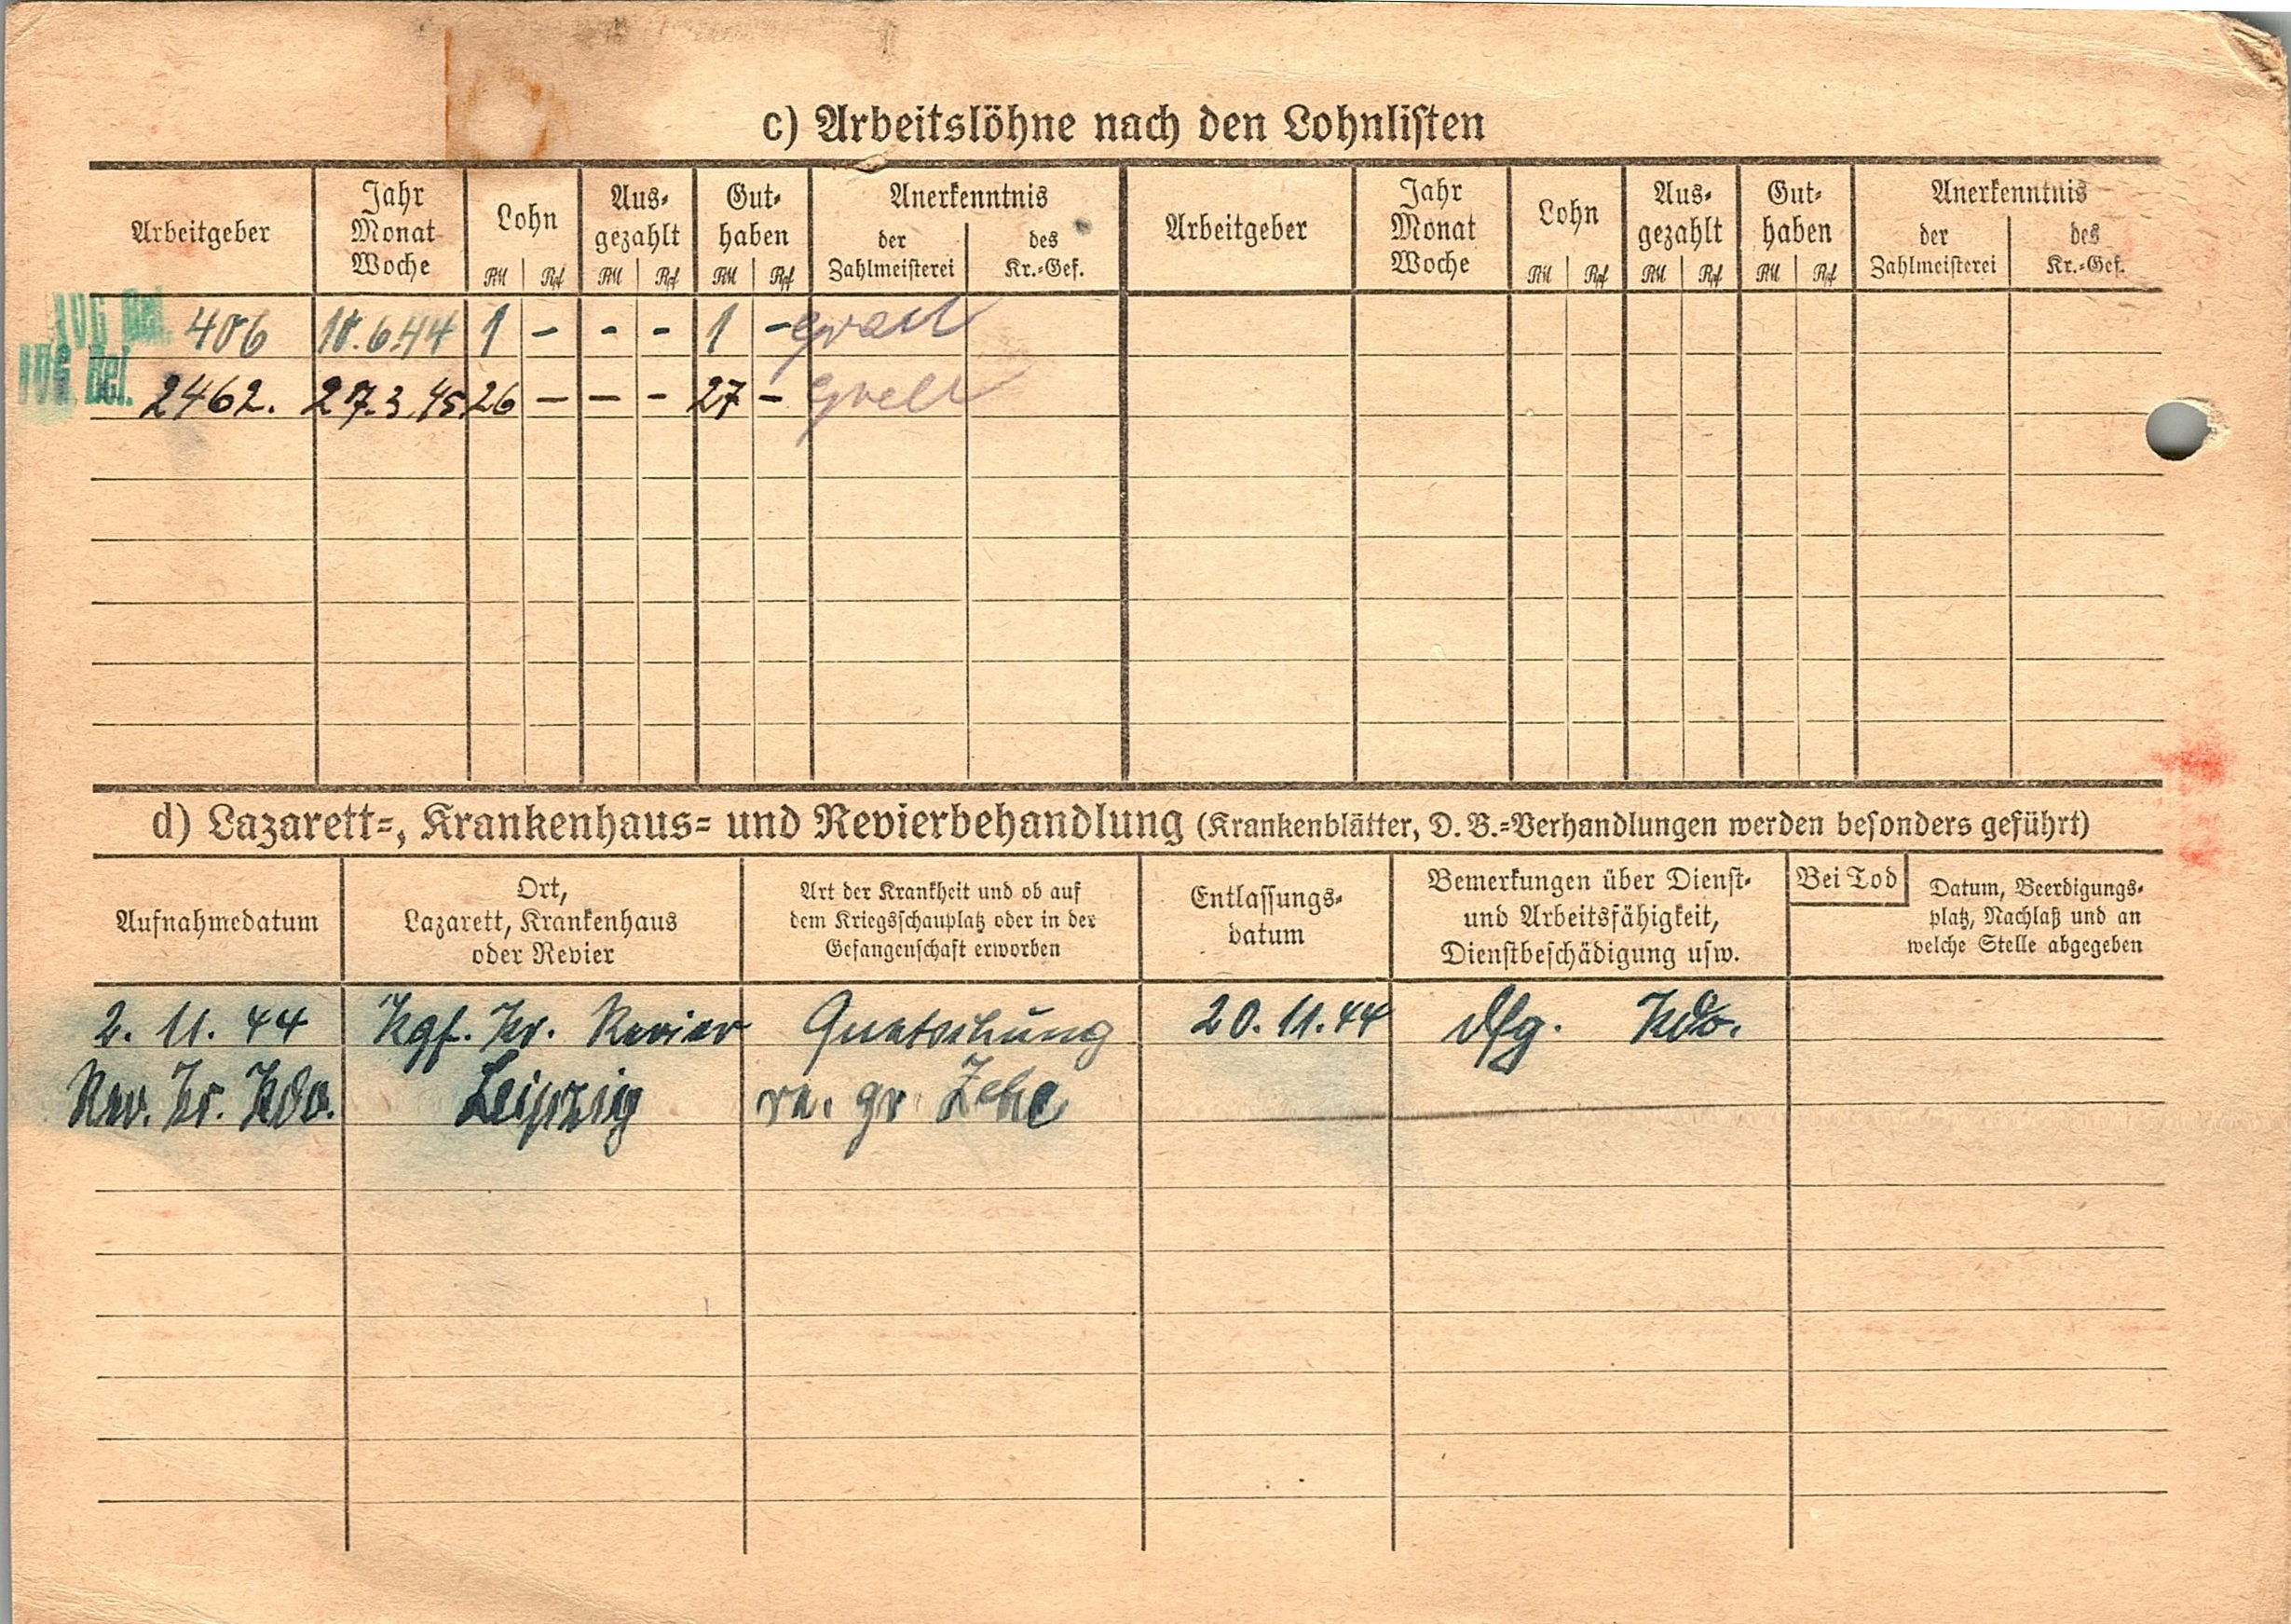 c) Arbeitslöhne nach den Lohnlisten
Arbeitgeber
Jahr
Monat
Woche
Lohn
RM Rpf
Aus-
gezahlt
RM Rpf
Gut-
haben
RM Rpf
Anerkenntnis
der
Zahlmeisterei
des
Kr.-Gef.
Arbeitgeber
Jahr
Monat
Woche
Lohn
RM Rpf
Aus-
gezahlt
RM Rpf
Gut-
haben
RM Rpf
Anerkenntnis
der
Zahlmeisterei
des
Kr.-Gef.
Bel. 406 6.44 1 - - - 1 -
Bel. 2462. 27.3.45. 26 - - - 27 -
d) Lazarett-, Krankenhaus- und Revierbehandlung (Krankenblätter, D. B.-Verhandlungen werden besonders geführt)
Aufnahmedatum
Ort,
Lazarett, Krankenhaus
oder Revier
Art der Krankheit und ob auf
dem Kriegsschauplatz oder in der
Gefangenschaft erworben
Entlassungs-
datum
Bemerkungen über Dienst-
und Arbeitsfähigkeit,
Dienstbeschädigung usw.
Bei Tod
Datum, Beerdigungs-
platz, Nachlaß und an
welche Stelle abgegeben
2. 11. 44 Kgf. Kr. Revier Quetschung 20. 11. 44 dfg. Kdo.
Rev. Kr. Kdo. Leipzig re. gr. Zehe